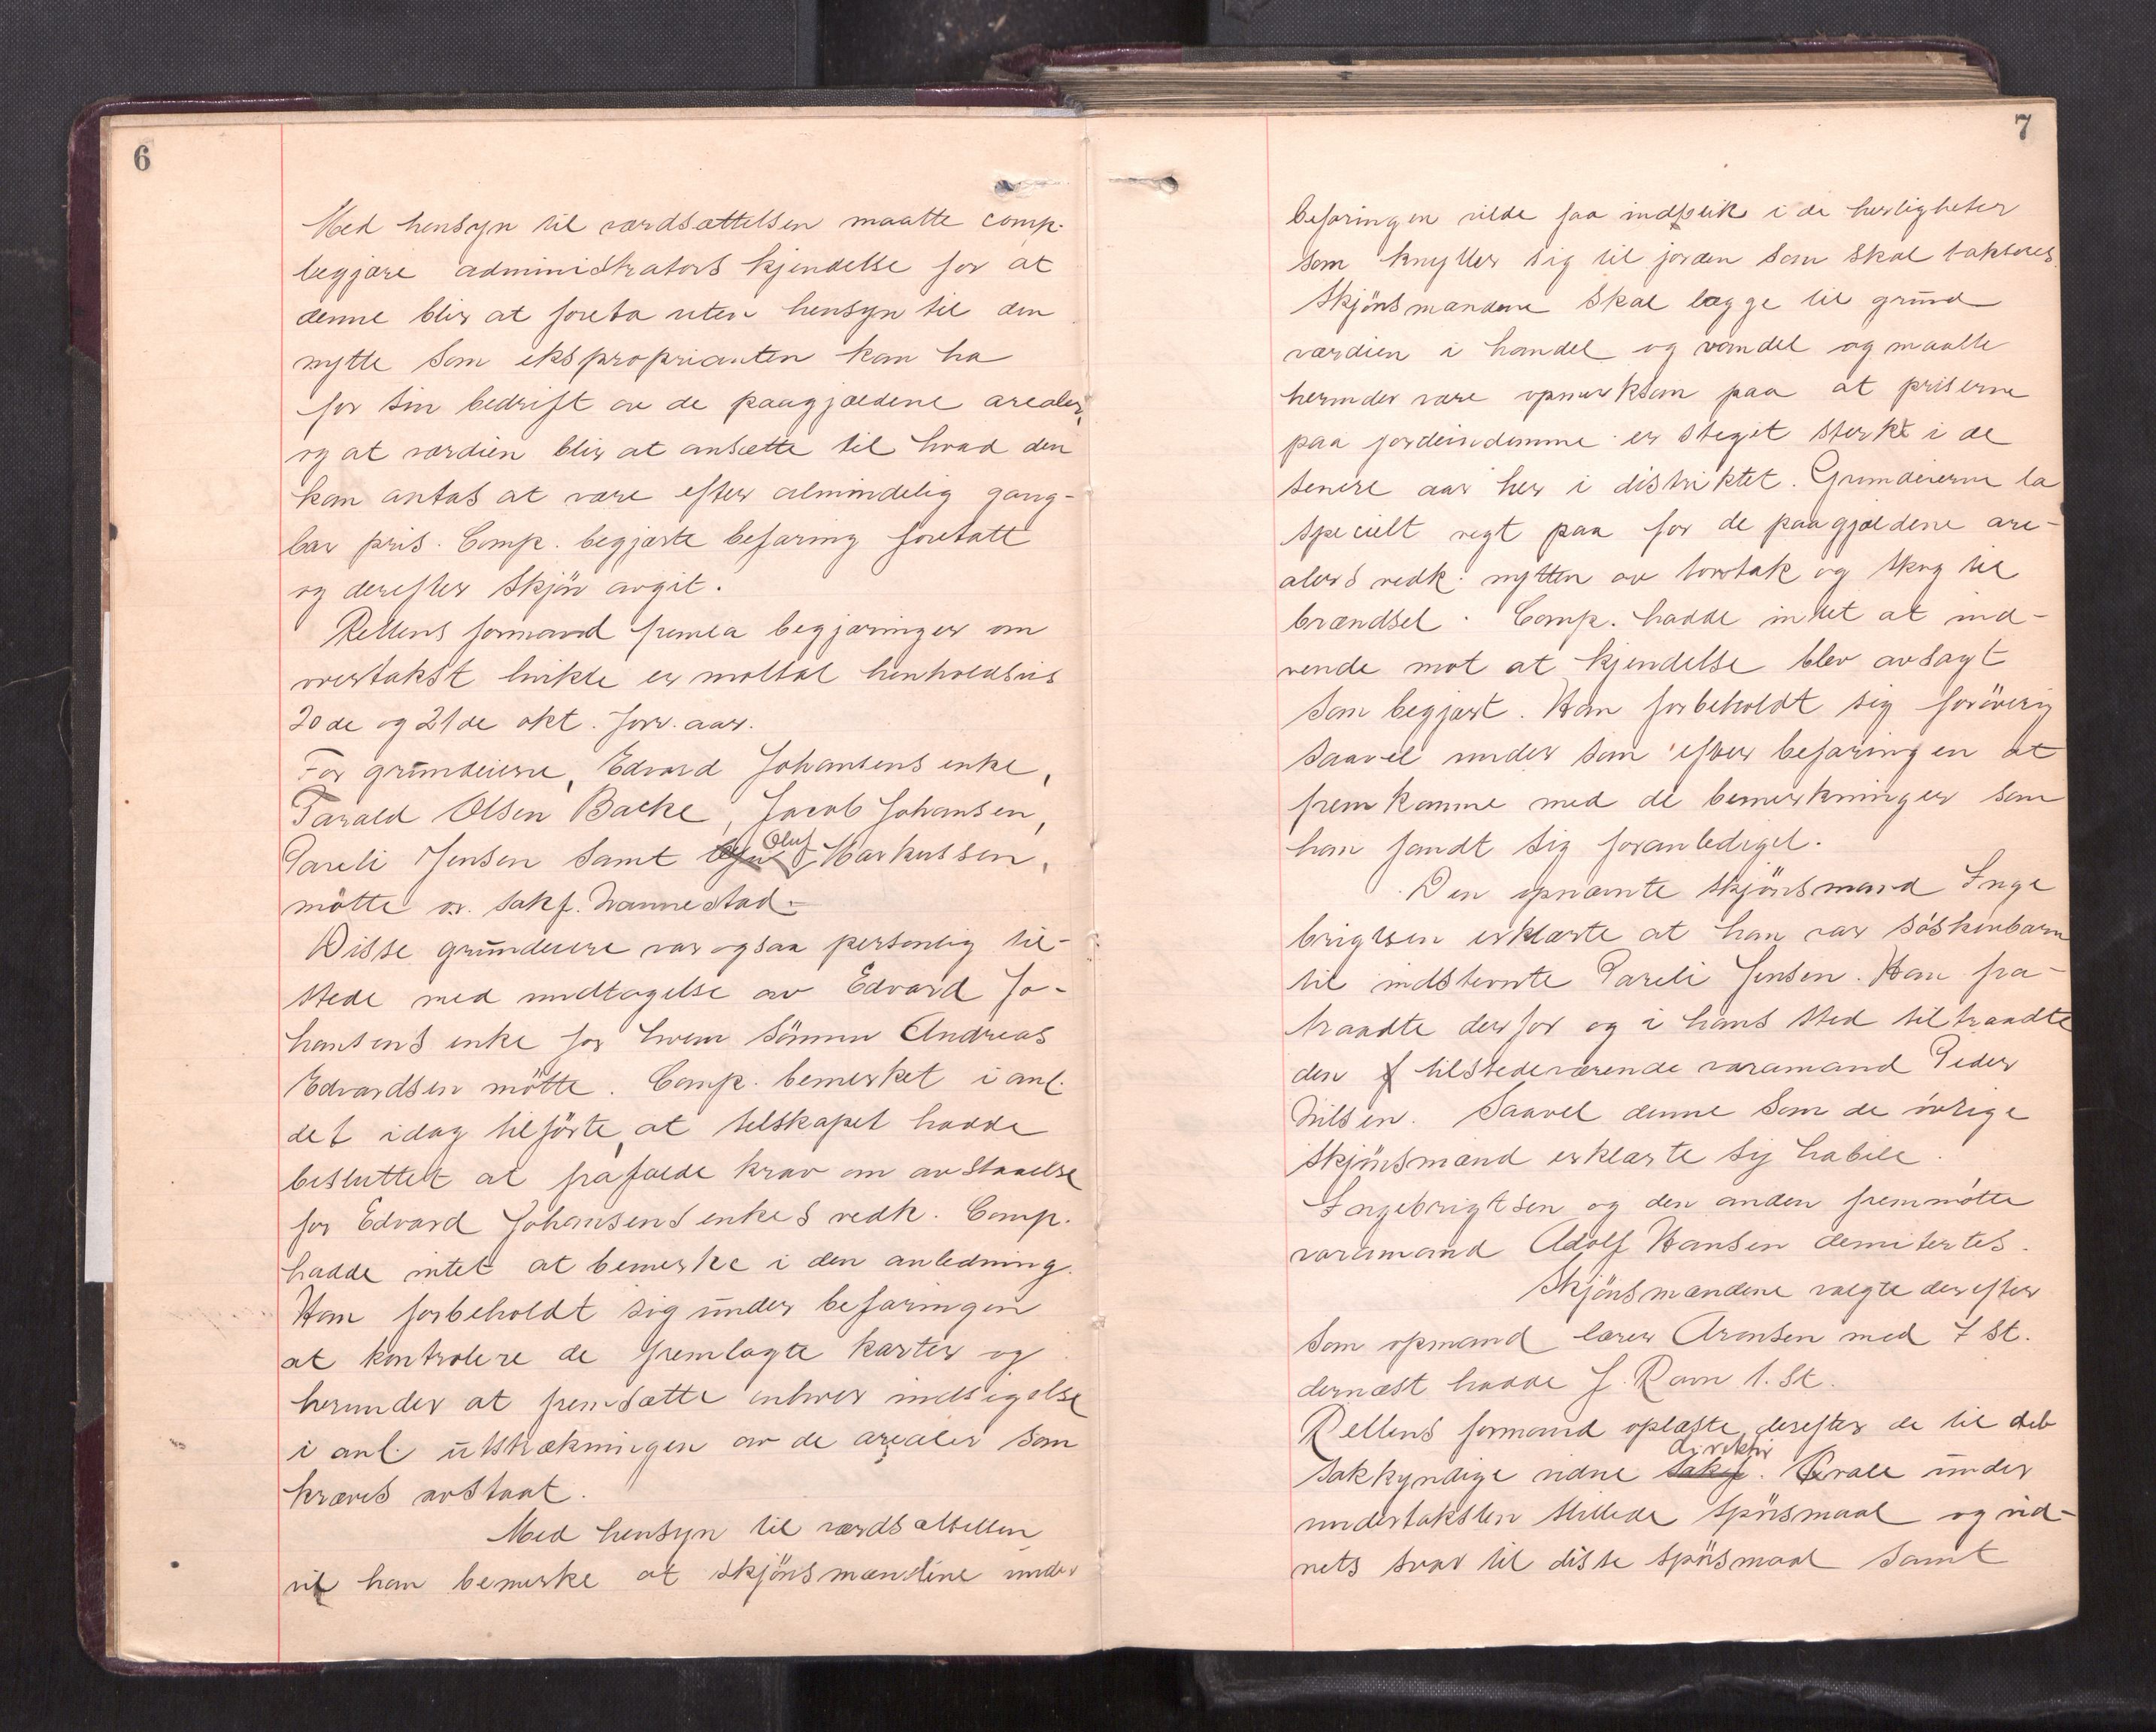 6
Med hensyn til værdsættelsen maatte comp.
begjære administrators kjendelse for at
denne blir at foreta uten hensyn til den
nytte som eksproprianten kan ha
for sin bedrift av de paagjældene arealer,
og at værdien blir at ansætte til hvad den
kan antas at være efter almindelig gang-
bar pris. Comp. begjærte befaring foretatt
og derefter skjön avgit.
Rettens formand fremla begjæringer om
overtakst hvikte er mottat henholdsvis
20de og 21de okt. forr. aar.
For grundeierne, Edvard Johansens enke,
Tarald Olsen Backe, Jacob Johansen,
Pareli Jensen samt Oluf Markussen,
mötte o.r. sakf. Wannestad.
Disse grundeiere var ogsaa personlig til-
stede med undtagelse av Edvard Jo-
hansens enke for hvem sönnen Andreas
Edvardsen mötte. Comp. bemerket i anl.
det idag tilförte, at selskapet hadde
besluttet at frafalde krav om avstaaelse
for Edvard Johansens enkes vedk. Comp.
hadde intet at bemerke i den anledning.
Han forbeholdt sig under befaringen
at kontrolere de fremlagte karter og
herunder at fremsætte enhver indsigelse
i anl. utstrækningen av de arealer som
kræves avstaat.
Med hensyn til værdsættelsen
vil han bemerke at skjönsmændene under
7
befaringen vilde faa indblik i de herligheter
som knytter sig til jorden som skal takseres.
Skjönsmændene skal lægge til grund
værdien i handel og vandel og maatte
herunder være opmerksom paa at priserne
paa jordeiendomme er steget sterkt i de
senere aar her i distriktet. Grundeierne la
specielt vegt paa for de paagjældene are-
alers vedk. nytten av torvtak og skog til
brændsel. Comp. hadde intet at ind-
vende mot at kjendelse blev avsagt
som begjært. Han forbeholdt sig forövrig
saavel under som efter befaringen at
fremkomme med de bemerkninger som
han fandt sig foranlediget.
Den opnævnte skjönsmand Inge
brigtsen erklærte at han var söskenbarn
til indstevnte Pareli Jensen. Han fra-
traadte derfor og i hans sted tiltraadte
den tilstedeværende varamand Peder
Nilsen. Saavel denne som de övrige
skjönsmænd erklærte sig habile.
Ingebrigtsen og den anden fremmötte
varamand Adolf Hansen demitertes.
Skjönsmændene valgte derefter
som opmand lærer Aronsen med 7 st.
dernæst hadde J. Ravn 1. st.
Rettens formand oplæste derefter de til det
sakkyndige vidne sakf. direktör Qvale under
undertaksten stillede spörsmaal og vid-
nets svar til disse spörsmaal samt